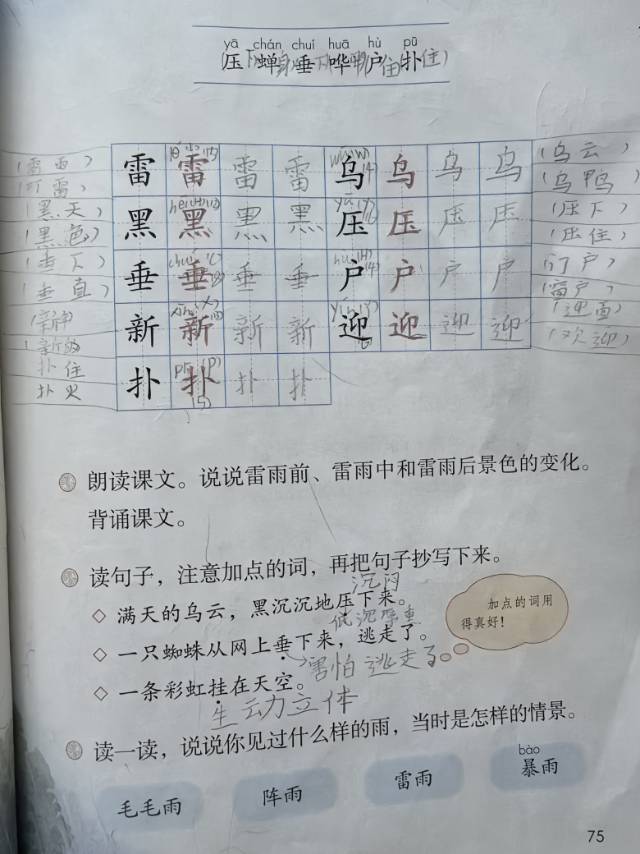 yā chán chuí huā hù pū
压 蝉 垂 哗 户 扑
(雷雨) 雷 雷 雷 雷 乌 乌 乌 乌 (乌云)
(打雷) (乌鸭)
(黑天) 黑 黑 黑 黑 压 压 压 压 (压下)
(黑色) (压住)
(垂下) 垂 垂 垂 垂 户 户 户 户 (门户)
(垂直) (窗户)
新 新 新 新 迎 迎 迎 迎 (迎面)
(欢迎)
扑住 扑 扑 扑 扑
扑火
朗读课文。说说雷雨前、雷雨中和雷雨后景色的变化。
背诵课文。
读句子，注意加点的词，再把句子抄写下来。
沉闷
◇ 满天的乌云，黑沉沉地压下来。
低沉厚重
◇ 一只蜘蛛从网上垂下来，逃走了。
害怕 逃走了
◇ 一条彩虹挂在天空。
生动立体
加点的词用
得真好！
读一读，说说你见过什么样的雨，当时是怎样的情景。
毛毛雨 阵雨 雷雨 bào 暴雨
75